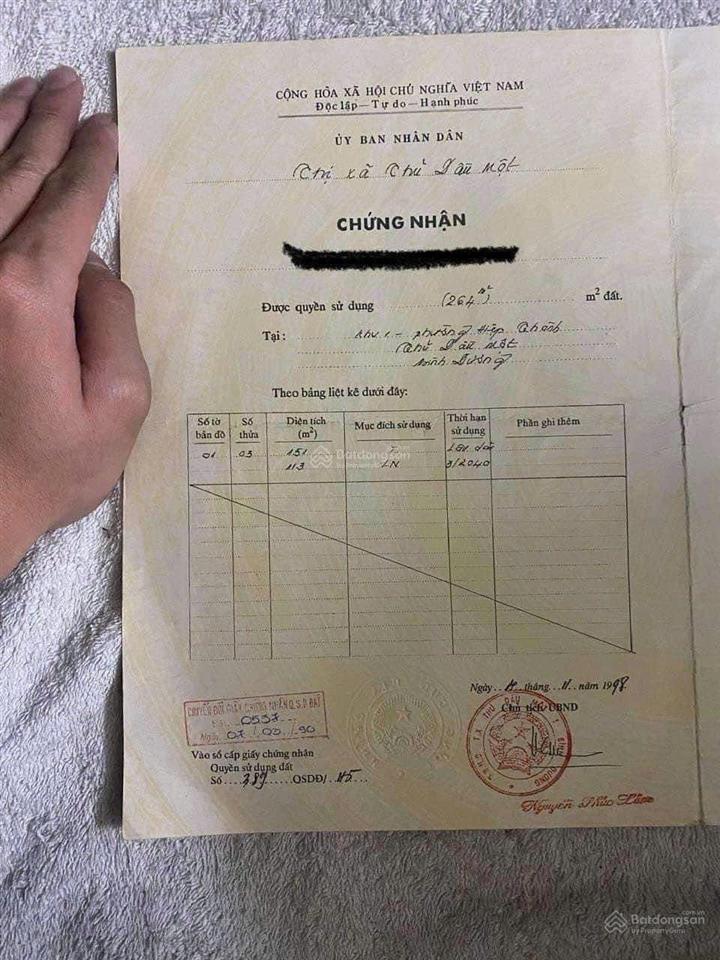 CỘNG HÒA XÃ HỘI CHỦ NGHĨA VIỆT NAM
Độc lập — Tự do — Hạnh phúc
ỦY BAN NHÂN DÂN
Thị xã Thủ Dầu Một
CHỨNG NHẬN
Được quyền sử dụng (264 m²) m² đất.
Tại: Khu 1 - phường Hiệp Thành
Thủ Dầu Một
Bình Dương
Theo bảng liệt kê dưới đây:
Số tờ bản đồ Số thửa Diện tích (m²) Mục đích sử dụng Thời hạn sử dụng Phần ghi thêm
01 03 151 Lâu dài
113 LN 3/2040
Batdongsan
by PropertyGuru
Ngày 17 tháng 11 năm 1998
Chủ tịch UBND
CHUYỂN ĐỔI GIẤY CHỨNG NHẬN Q.S.D ĐẤT
0537
Ngày 07/03/90
Vào sổ cấp giấy chứng nhận
Quyền sử dụng đất
Số 389 QSDĐ/
Batdongsan
.com.vn
by PropertyGuru